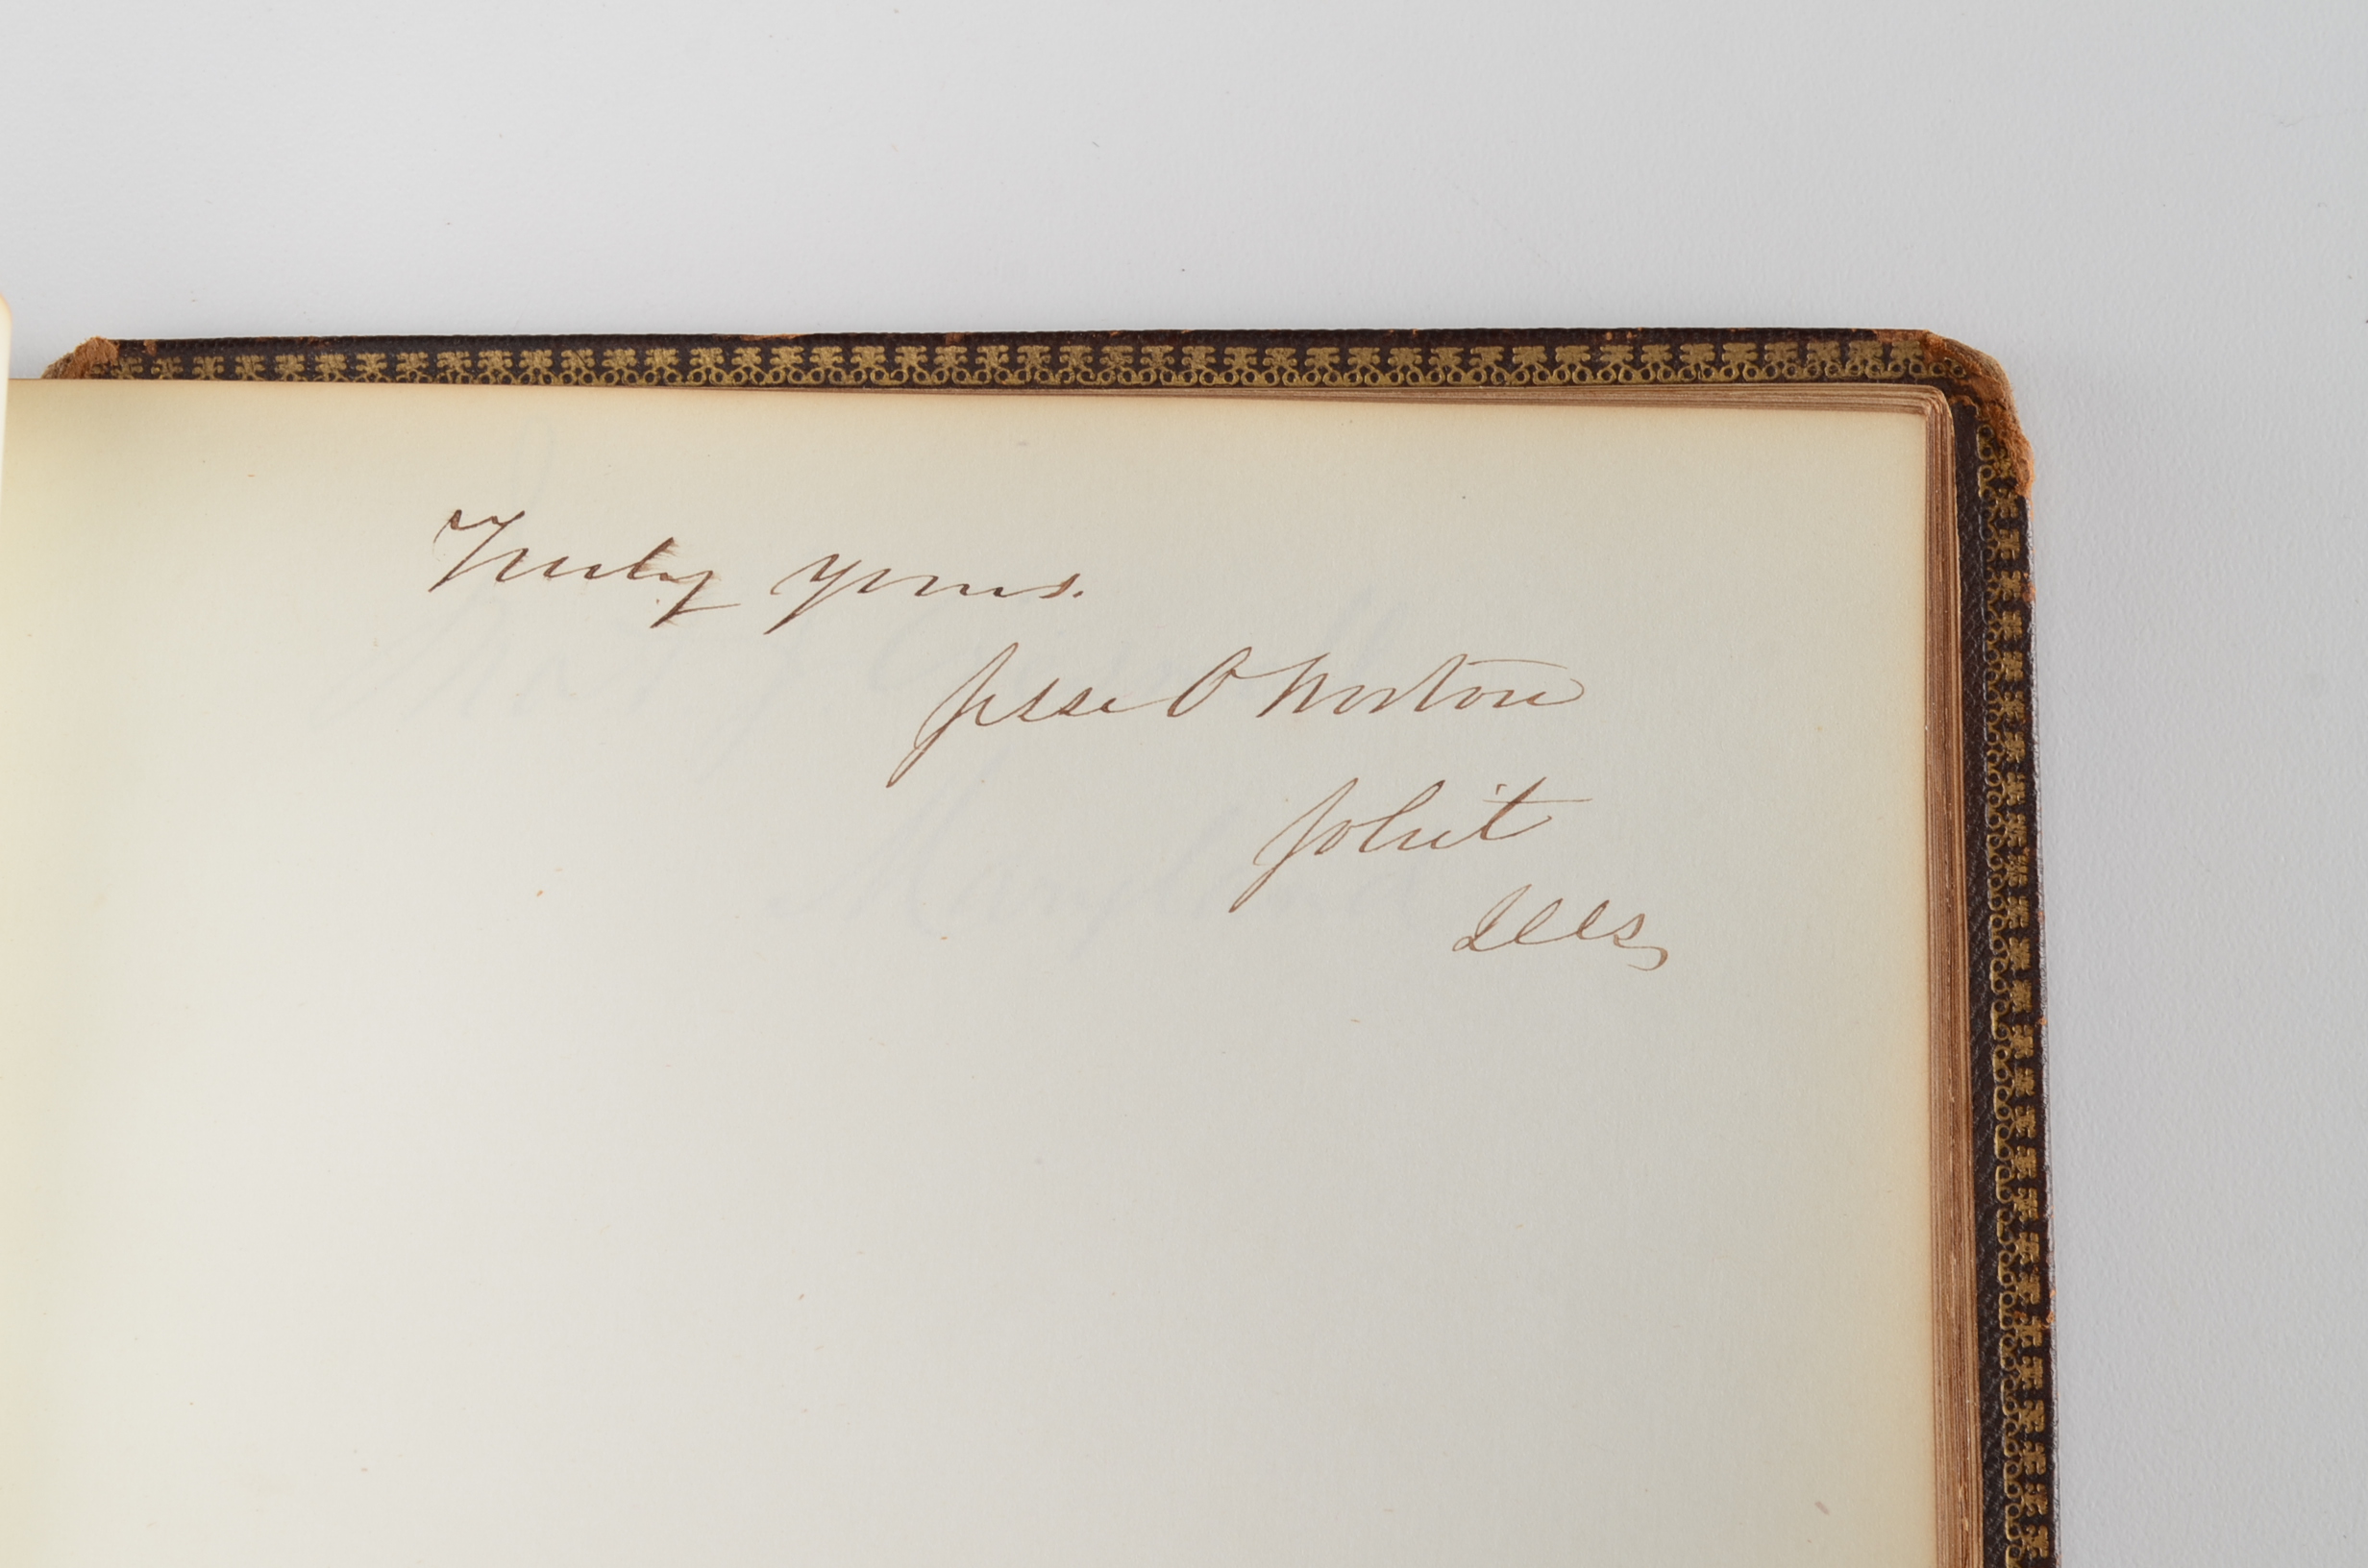 Truly yours.
Jesse O Norton
Joliet
Ills